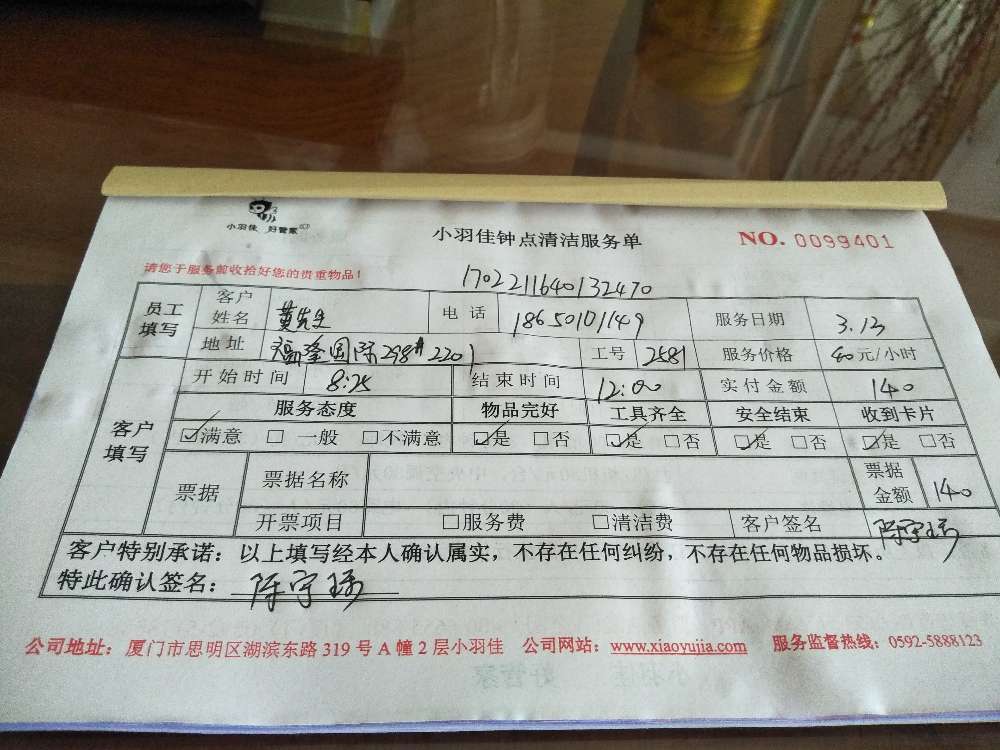 小羽佳 好管家
小羽佳钟点清洁服务单
NO. 0099401
请您于服务前收拾好您的贵重物品！
1702211640132470
员工填写 客户姓名 黄先生 电话 18650101149 服务日期 3.13
地址 福隆国际298#2201 工号 2581 服务价格 40元/小时
客户填写 开始时间 8:25 结束时间 12:00 实付金额 140
服务态度 物品完好 工具齐全 安全结束 收到卡片
☑满意 □一般 □不满意 ☑是 □否 ☑是 □否 ☑是 □否 ☑是 □否
票据 票据名称 票据金额 140
开票项目 □服务费 □清洁费 客户签名
客户特别承诺：以上填写经本人确认属实，不存在任何纠纷，不存在任何物品损坏。
特此确认签名：
公司地址：厦门市思明区湖滨东路319号A幢2层小羽佳 公司网站：www.xiaoyujia.com 服务监督热线：0592-5888123